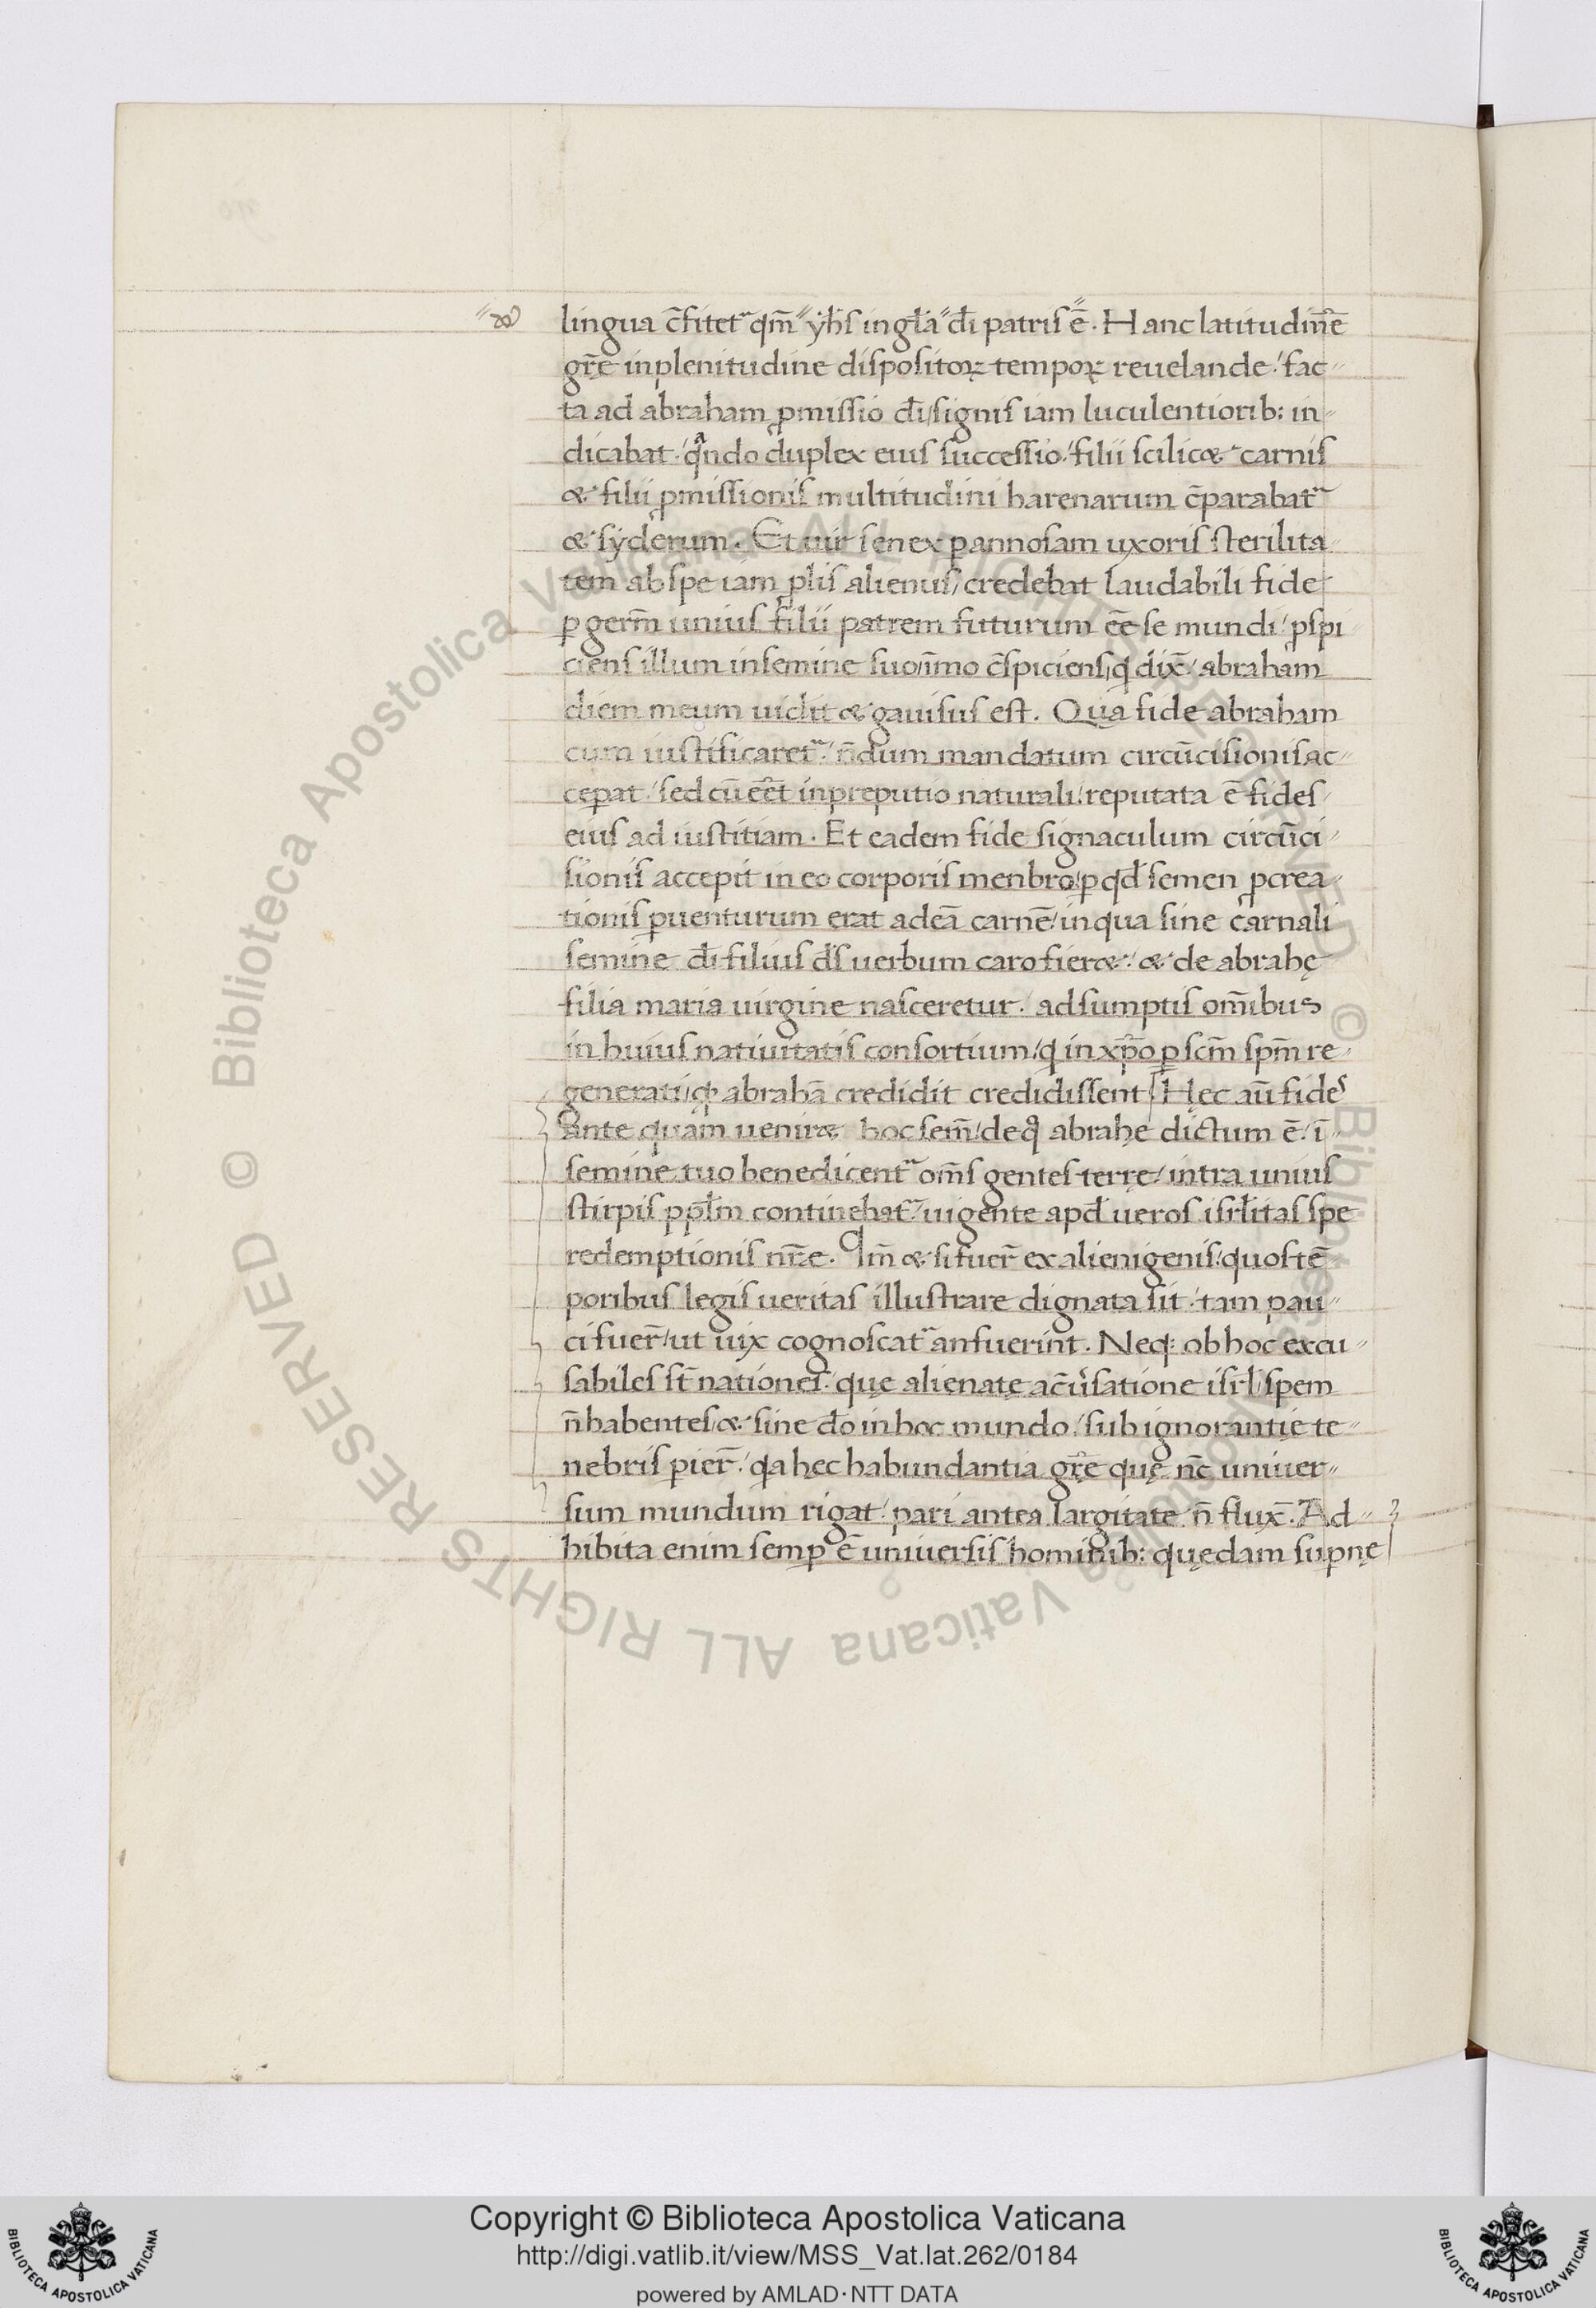 lingua c̄fitet᷑ qm̄ yh̄s in gl̄a dī patris ē. Hanc latitudinē
gr̄ę in plenitudine dispositoꝝ tempoꝝ reuelande / fac-
ta ad abraham ꝓmissio dī / signis iam luculentiorib: in-
dicabat / qᷓndo duplex eius successio / filii scilicæ carnis
æ filii ꝓmissionis multitudini harenarum c̄parabat᷑
æ syderum. Et uir senex ꝑ annosam uxoris sterilita-
tem ab spe iam ꝓlis alienus / credebat laudabili fide
ꝑ germ̄ unius filii patrem futurum eē se mundi / ꝓspi
ciens illum in semine suo / im̄mo c̄spiciens / q̇ dix̄ / abraham
diem meum uidit æ gauisus est. Qua fide abraham
cum iustificaret᷑ / n̄dum mandatum circūcisionis ac-
ceꝑat / sed cū eēt in preputio naturali / reputata ē fides
eius ad iustitiam. Et eadem fide signaculum circūci-
sionis accepit in eo corporis menbro / ꝑ qd̄ semen ꝓcrea-
tionis ꝑuenturum erat ad eā carnē / in qua sine carnali
semine dī filius ds̄ uerbum caro fieræ / æ de abrahę
filia maria uirgine nasceretur / adsumptis om̄ibus
in huius natiuitatis consortium / q̇ in xp̄o ꝑ scm̄ spm̄ re-
generati / qd̄ abrahā credidit credidissent Hęc aū fides
ante quam ueniræ hoc sem̄ / de qͦ abrahę dictum ē / ī
semine tuo benedicent᷑ om̄s gentes terrę / intra unius
stirpis ppl̄m continebat᷑ / uigente apd̄ ueros isrl̄itas spe
redemptionis nr̄ae. Qm̄ æ si fuer̄ ex alienigenis / quos tē-
poribus legis ueritas illustrare dignata sit / tam pau-
ci fuer̄ / ut uix cognoscat᷑ an fuerint. Neq; ob hoc excu-
sabiles st̄ nationes / quę alienatę a c̄uersatione isrl̄ / spem
n̄ habentes / æ sine dō in hoc mundo / sub ignorantię te-
nebris ꝑier̄ / qa hęc habundantia gr̄ę quę nc̄ uniuer-
sum mundum rigat / pari antea largitate n̄ flux̄. Ad-
hibita enim semꝑ ē uniuersis hominib: quędam suꝑnę
Copyright © Biblioteca Apostolica Vaticana
http://digi.vatlib.it/view/MSS_Vat.lat.262/0184
powered by AMLAD·NTT DATA
BIBLIOTECA APOSTOLICA VATICANA
BIBLIOTECA APOSTOLICA VATICANA
© Biblioteca Apostolica Vaticana ALL RIGHTS RESERVED
© Biblioteca Apostolica Vaticana ALL RIGHTS RESERVED